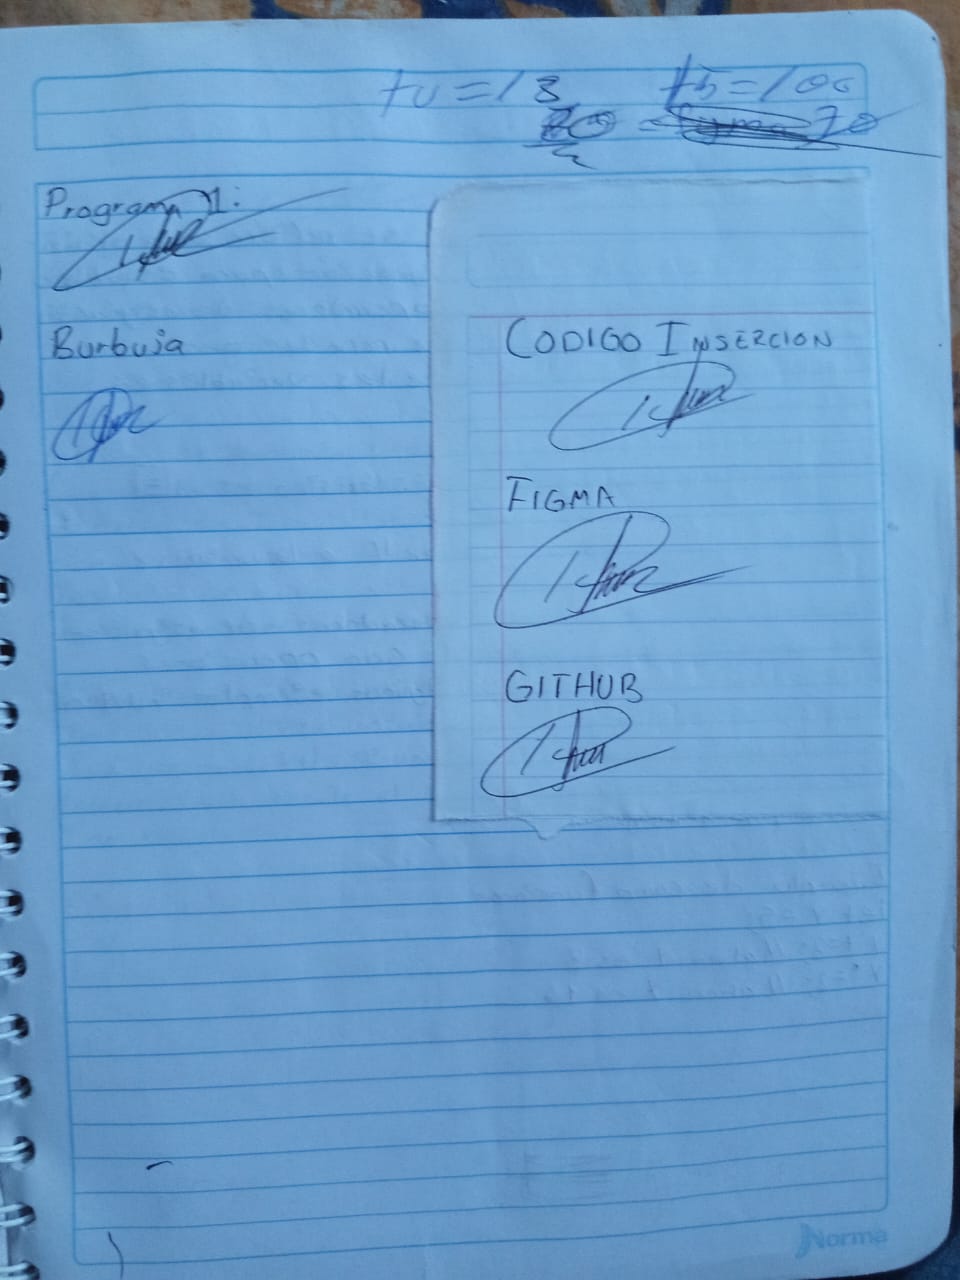 tu = 18 ts = 100
20 = 70
Programa 1:
Burbuja
CODIGO INSERCION
FIGMA
GITHUB
Norma